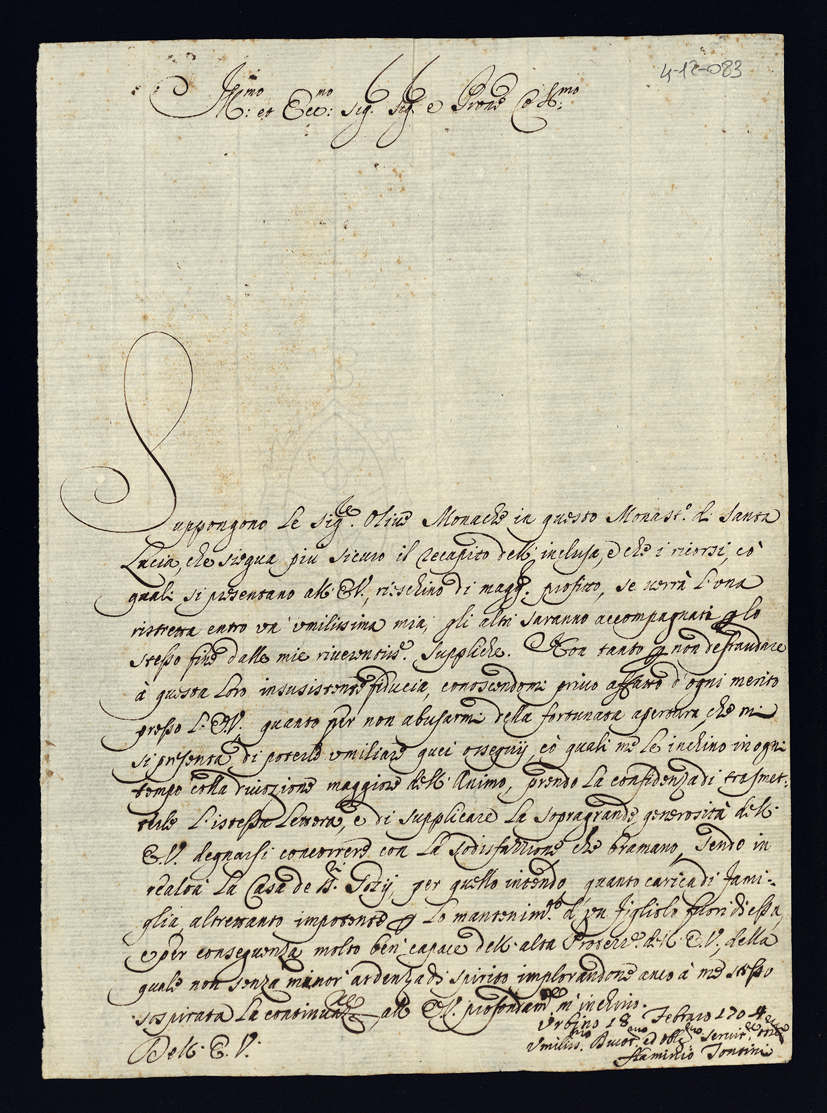 4-12-083
Ill:mo et Ecc:mo Sig: Sig: e Prone Col:mo
Suppongono le Sig.re Olive Monache in questo Monast.o di Santa
Lucia, che siegua più sicuro il recapito dell'inclusa, e che i ricorsi, cò
quali si presentano all'E.V., rieschino di magg.r profitto, se verrà l'una
ristretta entro un' umilissima mia, gli altri saranno accompagnati p lo
stesso fine dalle mie riverentiss.e suppliche. Non tanto p non defraudare
à questa loro insusistente fiducia, conoscendomi privo affatto d'ogni merito
presso l'E.V., quanto per non abusarmi della fortunata apertura, che mi
si presenta, di poterle umiliare quei ossequij, cò quali me le inchino in ogni
tempo colla divozione maggiore dell'Animo, prendo la confidenza di trasmet:
terle l'istessa lettera, e di supplicare la sopragrande generosità dell'
E.V. degnarsi concorrere con la sodisfazzione che bramano, sendo in
realtà la Casa de SS.ri Gozij, per quello intendo, quanto carica di fami:
glia, altrettanto impotente p lo mantenim.to d'un figliolo fuori di essa,
e per conseguenza molto ben capace dell'alta Protez.e dell'E.V., della
quale non senza minor' ardenza di spirito implorandone anco à me stesso
sospirata la continuaz.ne, all'E.V. profondam.te m'inchino.
Dell'E.V.
Urbino 18 Febraio 1704
Umiliss.mo Divot.mo ed obl.mo Servit.re
Flaminio Fontini